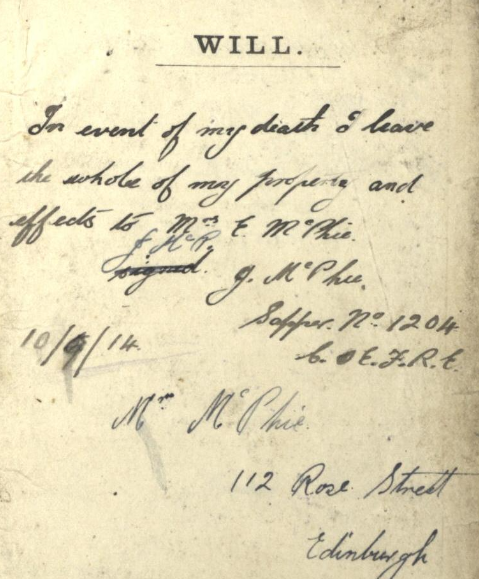 WILL.
In event of my death I leave
the whole of my property and
effects to Mrs E. McPhie.
J. McP.
signed. J. McPhie.
Sapper. No. 1204
10/9/14.
C. E. F. R. E.
Mrs McPhie.
112 Rose Street
Edinburgh